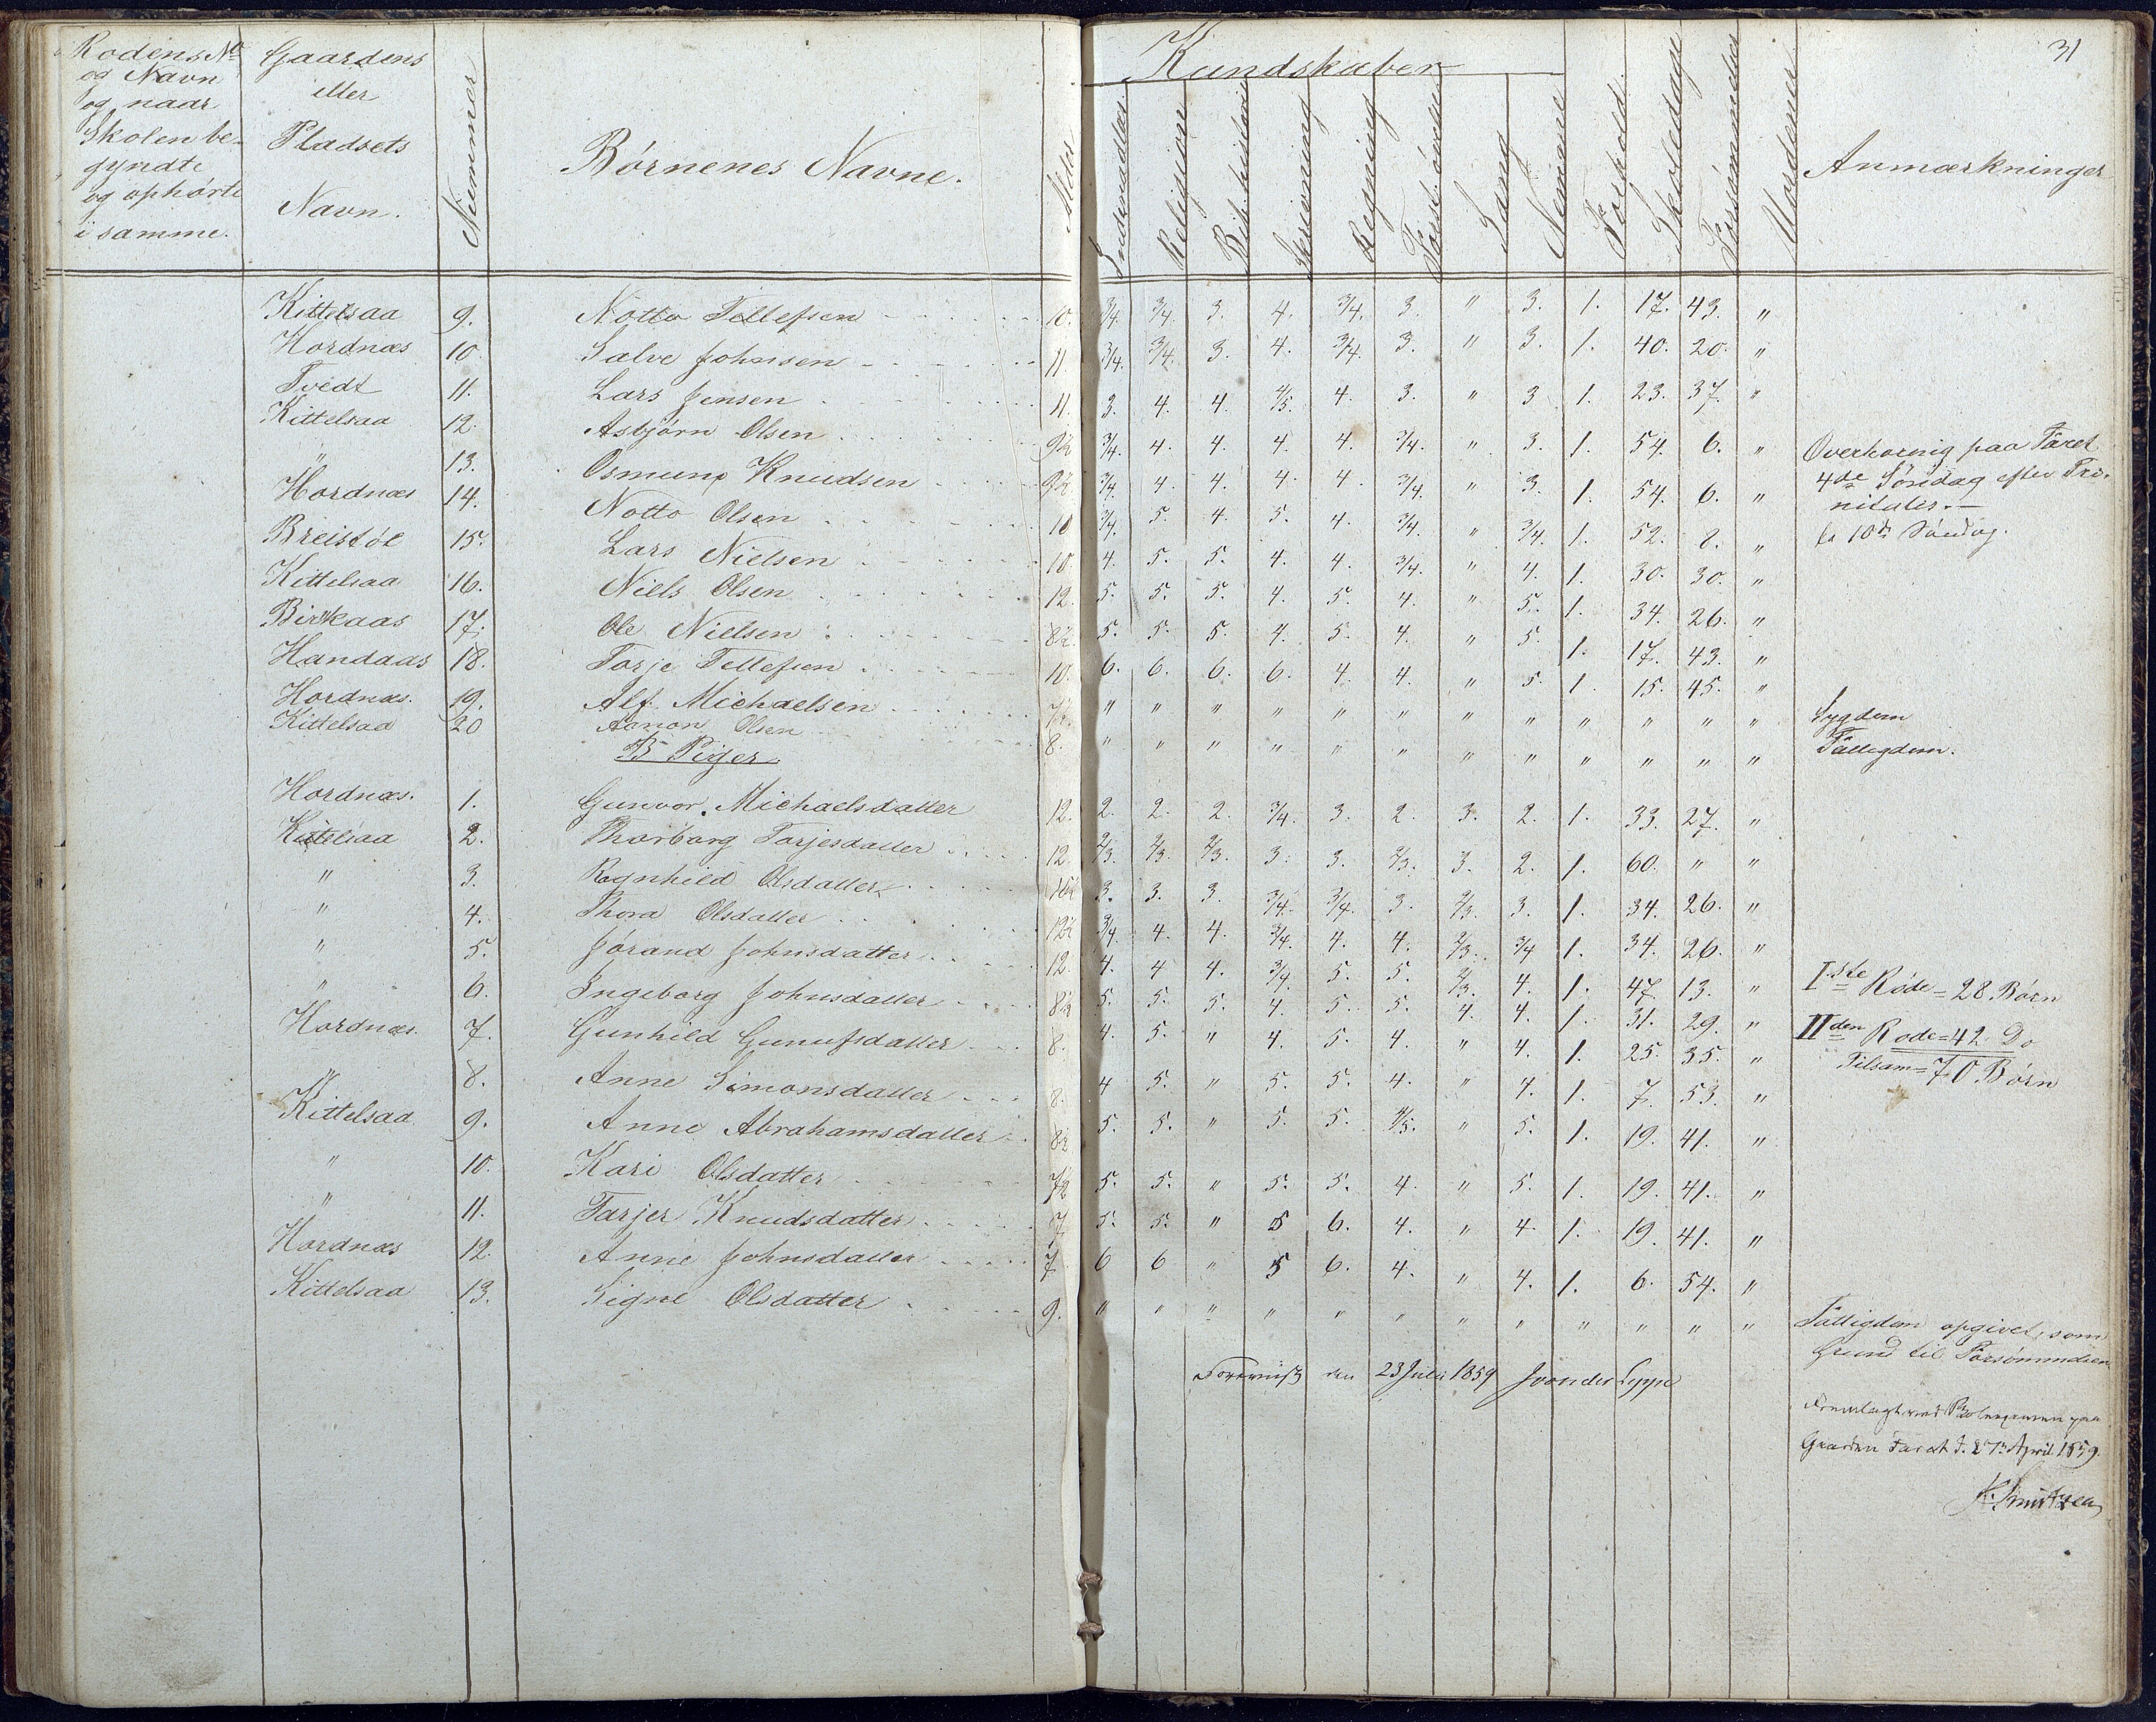 31
Rodens No og Navn og naar Skolen be- gyndte og ophørte i samme.
Gaardens eller Pladsets Navn.
Nummer
Børnenes Navne.
Alder
Kundskaber
Indenadlæs.
Religion
Bib. historie
Skrivning
Regning
Forst. øvelse
Sang
Nemme
Forhold.
Skoledage
Forsømmelser
Anmærkninger
Kittelsaa 9. Notto Tellefsen 10. 3/4. 3/4. 3. 4. 3/4. 3. " 3. 1. 17. 43. "
Hordnæs 10. Salve Johnsen 11. 3/4. 3/4. 3. 4. 3/4. 3. " 3. 1. 40. 20. "
Tvedt 11. Lars Jensen 11. 3. 4. 4. 4/5. 4. 3. " 3 1. 23. 37. "
Kittelsaa 12. Asbjørn Olsen 9½ 3/4. 4. 4. 4. 4. 3/4. " 3. 1. 54. 6. "
" 13. Osmund Knudsen 9½ 3/4. 4. 4. 4. 4. 3/4. " 3. 1. 54. 6. "
Hordnæs 14. Notto Olsen 10 3/4. 5. 4. 5. 4. 3/4. " 3/4. 1. 52. 8. "
Breistøl 15. Lars Nielsen 10. 4. 5. 5. 4. 4. 3/4. " 4. 1. 30. 30. "
Kittelsaa 16. Niels Olsen 12. 5. 5. 5. 4. 5. 4. " 5. 1. 34. 26. "
Birkaas 17. Ole Nielsen 8½ 5. 5. 5. 4. 5. 4. " 5. 1. 17. 43. "
Handaas 18. Torje Tellefsen 10. 6. 6. 6. 6. 4. 4. " 5. 1. 15. 45. "
Hordnæs. 19. Alf Michaelsen 7½ " " " " " " " " " " " " Sygdom
Kittelsaa 20 Aamon Olsen 8. " " " " " " " " " " " " Fattigdom.
B Piger
Hordnæs. 1. Gunvor Michaelsdatter 12. 2. 2. 2. 3/4. 3. 2. 3. 2. 1. 33. 27. "
Kittelsaa 2. Thorborg Torjesdatter 12. 2/3. 2/3. 2/3. 3. 3. 2/3. 3. 2. 1. 60. " "
" 3. Ragnhild Olsdatter 3. 3. 3. 3/4. 3/4. 3. 2/3. 3. 1. 34. 26. "
" 4. Thora Olsdatter 12½ 3/4. 4. 4. 3/4. 4. 4. 2/3. 3/4 1. 34. 26. "
" 5. Jørand Johnsdatter 12. 4. 4 4. 3/4. 5. 5. 2/3. 4. 1. 47. 13. "
" 6. Ingeborg Johnsdatter 8½ 5. 5. 5. 4. 5. 5. 4. 4. 1. 31. 29. "
Hordnæs. 7. Gunhild Gunufsdatter 8. 4. 5. " 4. 5. 4. " 4. 1. 25. 35. "
" 8. Anne Simonsdatter 8. 4 5. " 5. 5. 4. " 4. 1. 7. 53. "
Kittelsaa 9. Anne Abrahamsdatter 8½ 5. 5. " 5. 5. 4/5. " 5. 1. 19. 41. "
" 10. Kari Olsdatter 7½ 5. 5. " 5. 5. 4. " 5. 1. 19. 41. "
" 11. Tarjer Knudsdatter 7 5. 5. " 5 6. 4. " 4. 1. 19. 41. "
Hordnæs 12. Anne Johnsdatter 7 6 6 " 5 6. 4. " 4. 1. 6. 54. "
Kittelsaa 13. Signe Olsdatter 9. " " " " " " " " " " " "
Overhøring paa Faret
4de Søndag efter Tri-
nitatis.—
10de Søndag.
Iste Rode = 28 Børn
IIden Rode = 42 Do
Tilsam = 70 Børn
Fattigdom opgivet, som
Grund til Forsømmelsen
den 23 Juli 1859 J von der Lippe
Fremlagt ved paa
Gaarden Faret d. 27de April 1859.
K. Knutzen